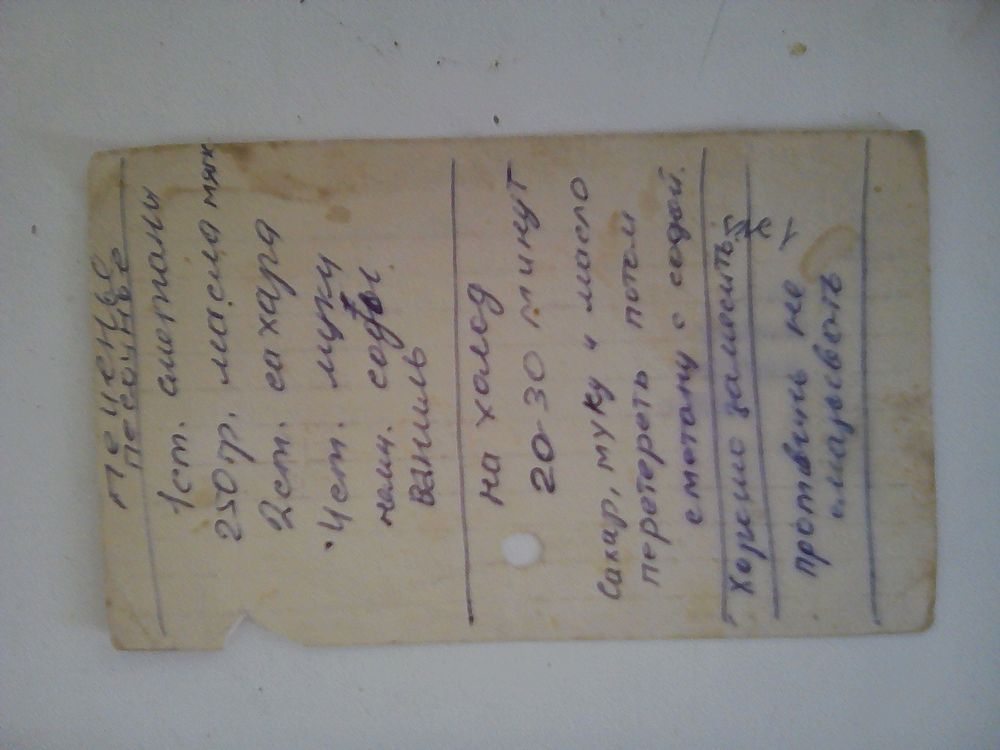 Печенье
песочное
1ст. сметаны
250 гр. масла мягк
2ст. сахара
4ст. муки
нем. соды
Ваниль
на холод
20-30 минут
Сахар, муку и масло
перетереть потом
сметану с содой.
Хорошо замесить
противень не
смазывать